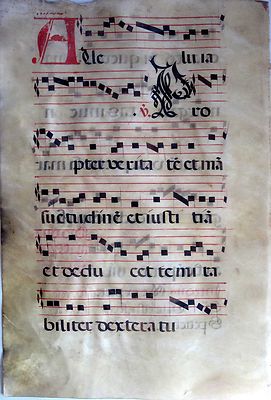 A lle lu ia
℣. P ro
pter verita tē et mā
suetudinē et iusti tiā
et dedu cet te mi ra
biliter dextera tu